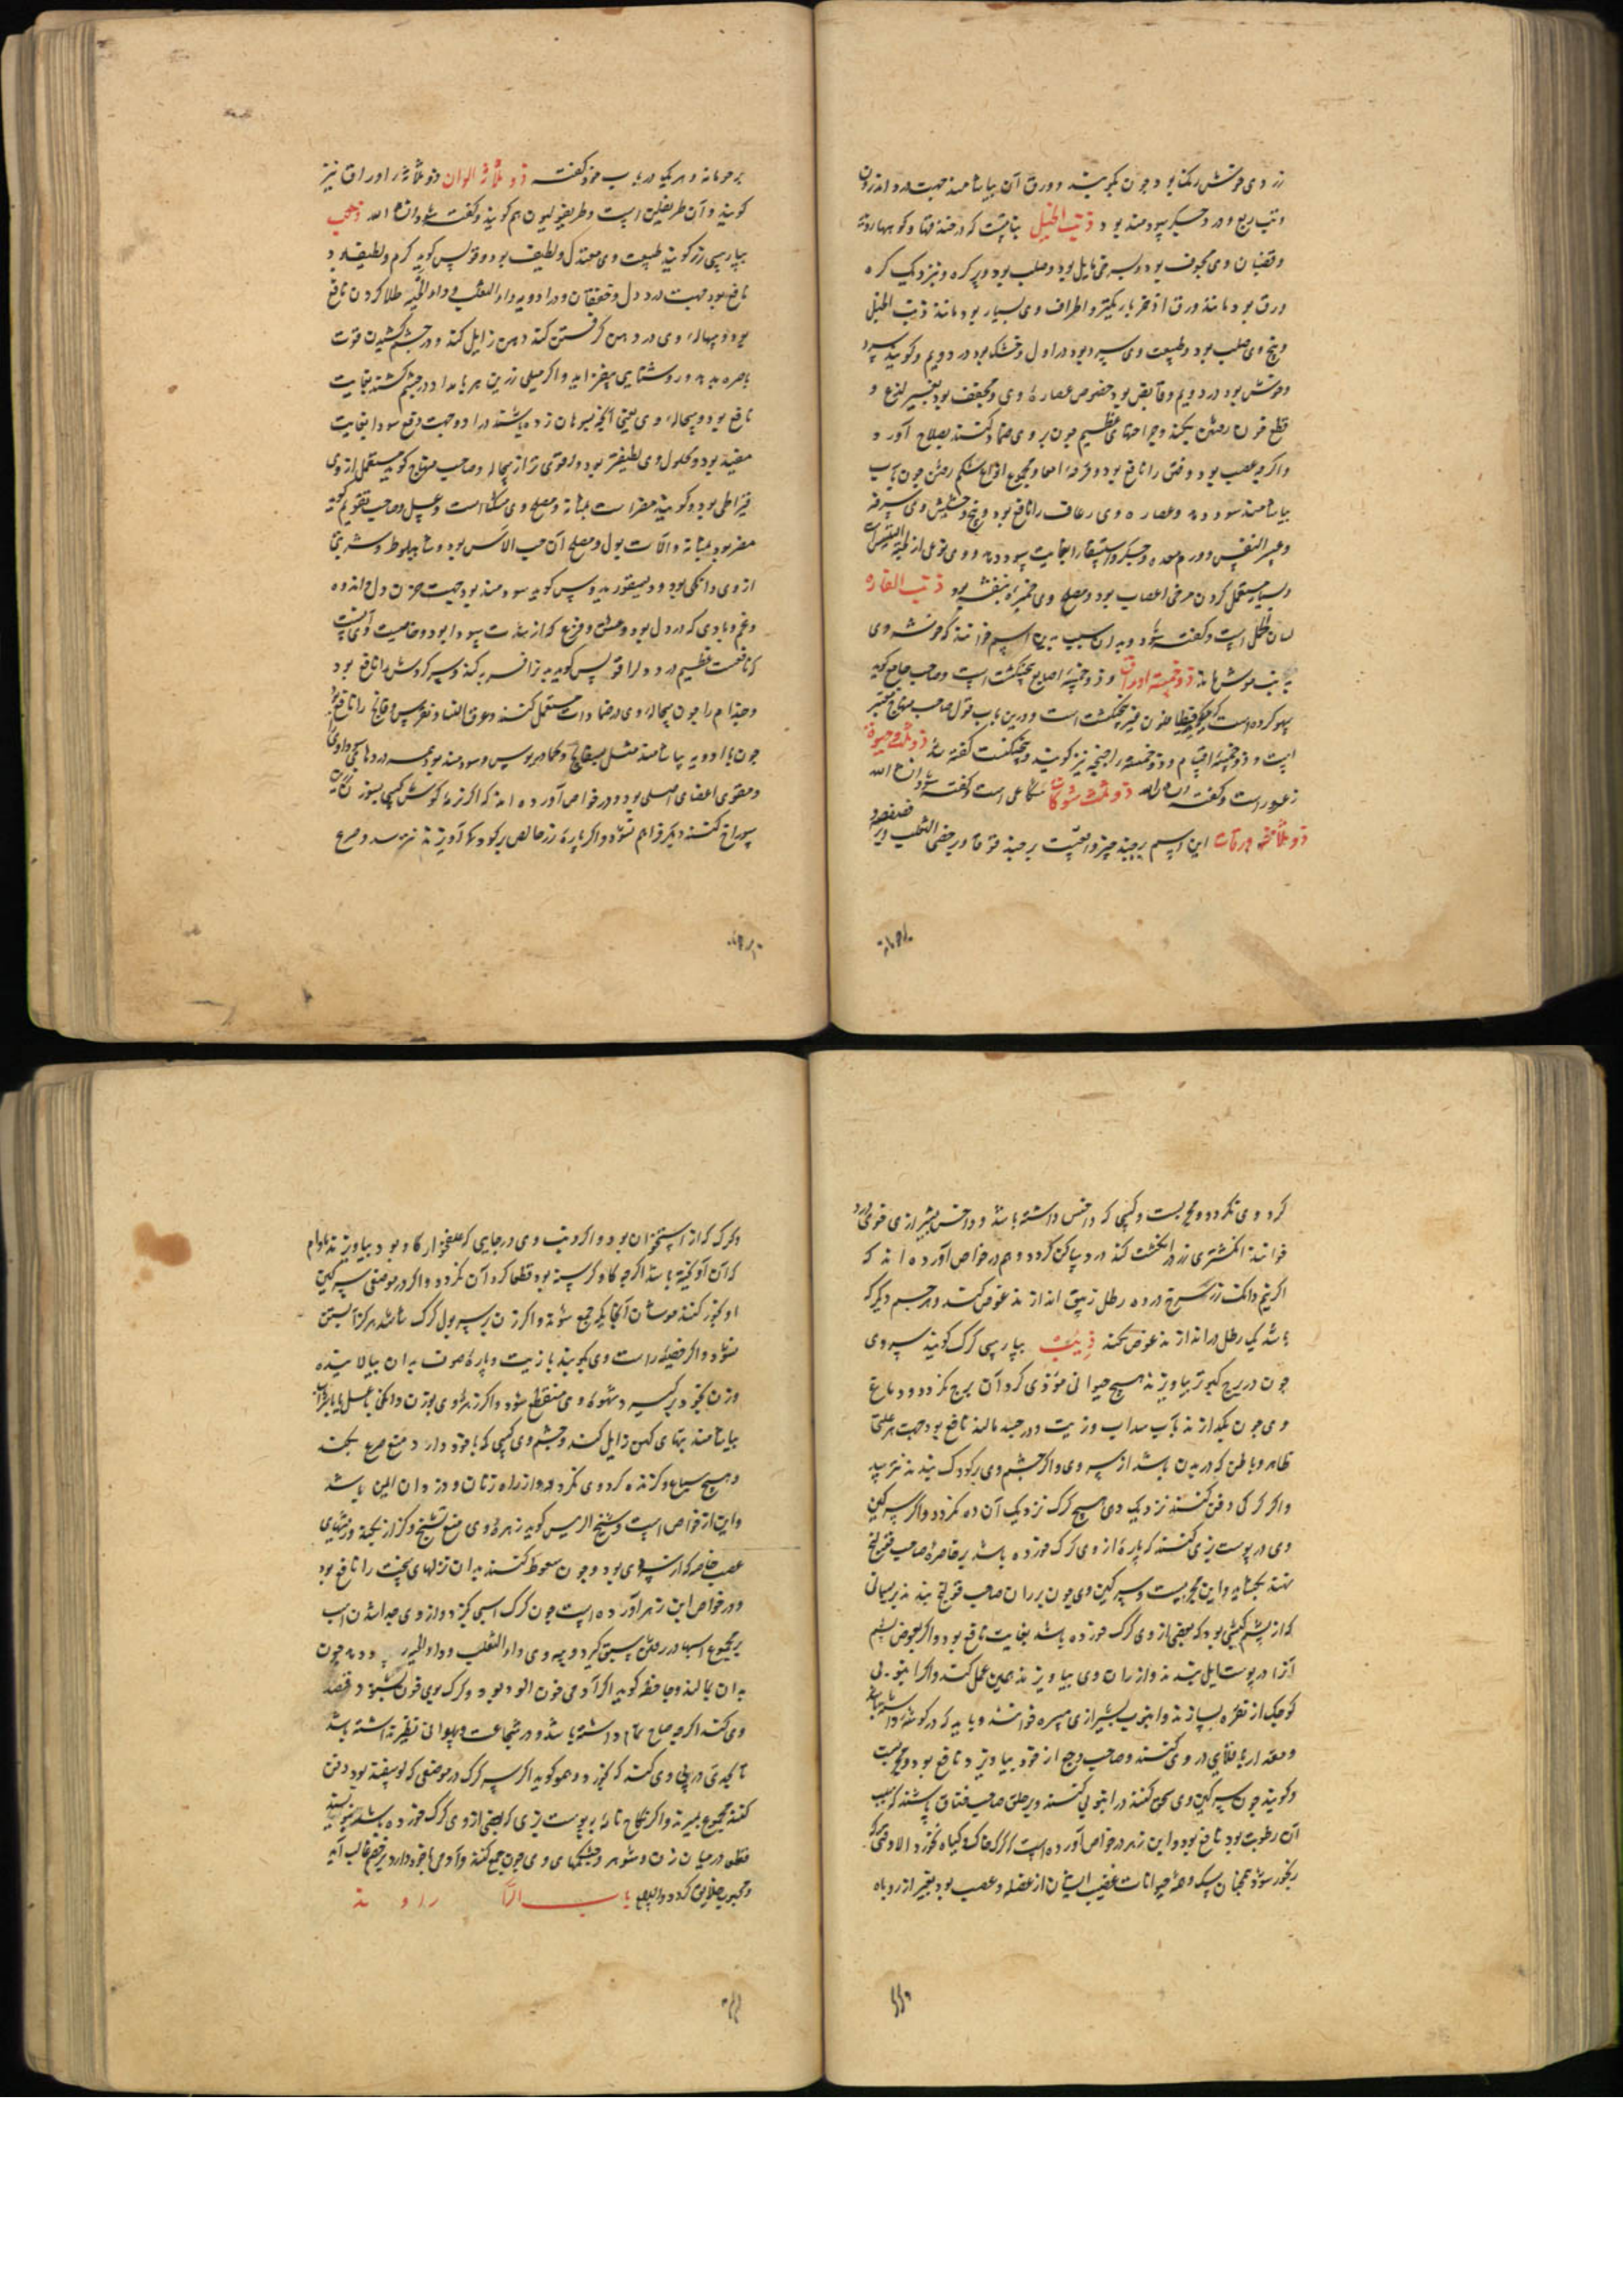 زردی خوش رنک بود چون بکوبند و ورق آن بیاشامند جهت درد اندرون
و تب ربع و درد جگر سودمند بود و ذنب الخیل نباتیست که در خندقها و کوهها روید
و قضبان وی مجوف بود و بسرخی مایل بود و صلب بود و پر کره و نزدیک کره
ورق بود مانند ورق اذخر باریکتر و اطراف وی بسیار بود مانند ذنب الخیل
و بیخ وی صلب بود و طبیعت وی سرد بود در اول و خشک بود در دویم و کویند سرد
و خشک بود در دویم و قابض بود خصوص عصاره وی و مجفف بود بغیر لذع و
قطع خون رفتن بکند و جراحتهای عظیم چون بر وی ضماد کنند بصلاح آورد
و اکرچه عصب بود و فتق را نافع بود و قرحه امعا و مجموع انواع شکم رفتن چون بآب
بیاشامند سود دهد و عصاره وی رعاف را نافع بود و بیخ و حشیش وی سرفه
و عسر النفس و ورم معده و جگر و استسقا را بغایت سود دهد و وی نوعی از لحیة التیس است
و بسیار مستعمل کردن مرخی اعصاب بود و مصلح وی خمیره بنفشه بود ذنب الفاره
لسان الحمل است و گفته شود و بدان سبب بدین اسم خوانند که خوشه وی
بذنب موش ماند ذو خمسة اوراق و ذو خمسة اصابع بنجنکشت است و صاحب جامع کوید
سهو کرده است که کویند نبطافلون غیر بنجنکشت است و درین باب قول صاحب منهاج معتبر
است و ذو خمسة اقسام و ذو خمسه اجنحه نیز کویند و بنجنکشت گفته شد
زعرور است و گفته شود انشاء الله ذو ثلث شوکات شکاعی است و گفته شود انشاء الله
ذو ثلاثه ورقات این اسم بر چند چیز واقعست بر حندقوقا و بر خصی الثعلب و بر فصفصه و
بر حومانه و هر یک در باب خود گفته ذو ثلاثة الوان و ذو ثلاثه اوراق نیز
کویند و آن طریفلن است و طریفولیون هم کویند و گفته شود انشاء الله ذهب
بپارسی زر کویند طبیعت وی معتدل و لطیف بود و قولس کوید کرم و لطیف بود
نافع بود جهت درد دل و خفقان و در ادویه داء الثعلب و داء الحیه طلا کردن نافع
بود و سحاله وی در دهن کرفتن کند دهن زایل کند و در چشم کشیدن قوت
باصره بدهد و روشنایی بیفزاید و اکر میلی زرین هر بامداد در چشم کشند بغایت
نافع بود و سحاله وی یعنی آنکه بسوهان زده باشند در ادویه جهت دفع سودا بغایت
مفید بود و محلول وی لطیفتر بود و قوی تر از سحاله و صاحب منهاج کوید مستعمل از وی
قیراطی بود و کویند مضر است بمثانه و مصلح وی مشک است و عسل و صاحب تقویم کوید
مضر بود بمثانه و آلات بول و مصلح آن حب الآس بود و شاه بلوط و شربتی
از وی دانکی بود و دیسقوریدوس کوید سودمند بود جهت حزن دل و اندوه
و غم و بادی که در دل بود و عشق و فزع که از شدت سودا بود و خاصیت وی آنست
که نافعست عظیم درد دل را قولس کوید بدن را فربه کند و سر کروش را نافع بود
و جذام را چون سحاله وی در ضمادات مستعمل کنند و عرق النسا و نقرس و فالج را نافع بود
چون با ادویه بیاشامند مثل بسفایج و کمادریوس و سودمند بود جهت دردها
و مقوی اعضای اصلی بود و در خواص آورده اند که اکر نرمه کوش کسی بسوزن زرین
سوراخ کنند دیکر فراهم نشود و اکر پاره زر خالص بر کودک آویزند نترسد و صرع
کرد وی نکردد و مجربست و کسی که داحس داشته باشد و داحس بشیرازی خوی درد
خوانند انکشتری زر در انکشت کند درد ساکن کردد و هم در خواص آورده اند که
اکر نیم دانک زر سرخ در ده رطل زیبق اندازند غوص کند و هر جسم دیکر که
باشد یک رطل در اندازند غوص نکند ذئب بپارسی کرک کویند سر وی
چون در برج کبوتر بیاویزند هیچ حیوانی موذی کرد آن برج نکردد و دماغ
وی چون بکدازند بآب سداب و زیت و در جسد مالند نافع بود جهت هر علتی
ظاهر و باطن که در بدن باشد از سردی و اکر چشم وی بر کودک بندند نترسد
و اکر کرکی دفن کنند نزدیک دهی هیچ کرک نزدیک آن ده نکردد و اکر سرکین
وی در پوست بزی کنند که پاره از وی کرک خورده باشد بر خاصره صاحب قولنج
بندند بکشاید و این مجربست و سرکین وی چون بر ران صاحب قولنج بندند بریسمانی
که از پشم کبشی بود که بعضی از وی کرک خورده باشد بغایت نافع بود و اکر بعوض پشم
آنرا در پوست ایل بندند و از ران وی بیاویزند همین عمل کند و اکر انبوبی
کوچک از نقره بسازند و انبوب بشیرازی میسره خوانند و باید که در کوشه داشته باشد
و مقدار باقلایی در وی کنند و صاحب وجع از خود بیاویزد نافع بود و مجربست
و کویند چون سرکین وی سحق کنند در انبوبی کنند و بر حلق صاحب خناق پاشند که سبب
آن رطوبت بود نافع بود و ابن زهر در خواص آورده است که کرک خاک و کیاه نخورد الا وقتی که
رنجور شود همچنان سک و همه حیوانات قضیب ایشان از عضله و عصب بود بغیر از روباه
و کرک که از استخوان بود و اکر ذنب وی در جایی که علفزار کاو بود بیاویزند مادام
که آن آویخته باشد اکرچه کاو کرسنه بود قطعا کرد آن نکردد و اکر در موضعی سرکین
او بخور کنند موشان آنجا یکه جمع شوند و اکر زن بر سر بول کرک شاشد هرکز آبستن
نشود و اکر خصیه راست وی بکوبند با زیت و پاره صوف بدان بیالایند
و زن بخود برکیرد شهوت وی منقطع شود و اکر زهره وی بوزن دانکی با عسل یا با شراب
بیاشامند تبهای کهن زایل کند و چشم وی کسی که با خود دارد منع صرع بکند
و هیچ سباع و کزنده کرد وی نکردد و از راه زنان و دزدان ایمن باشد
و این از خواص است و شیخ الرئیس کوید زهره وی منع تشنج و کزاز بکند و زخمهای
عصب خاصه که از سردی بود و چون سعوط کنند بدان نزلهای سخت را نافع بود
و در خواص ابن زهر آورده است چون کرک اسبی بکزد و از وی جدا شد آن اسب
بر مجموع اسبها در رفتن سبق گیرد و پیه وی داء الثعلب و داء الحیه را سود دهد چون
بدان بمالند و جاحظ کوید اکر آدمی خون آلود بود و کرک بوی خون بشنود قصد
وی کند اکرچه سلاح تمام داشته باشد و در شجاعت و پهلوانی نظیر نداشته باشد
تا بحدی در پی وی کند که بخورد و همو کوید اکر سر کرک در موضعی که کوسفند بود دفن
کنند مجموع بمیرند و اکر نکاح نامه بر پوست بزی که بعضی از وی کرک خورده باشد بنویسند
قطعا در میان زن و شوهر و چشمهای وی چون جمع کنند و آدمی با خود دارد بر خصم غالب آید
و محبوب خلایق کردد والله اعلم باب الرا راوند